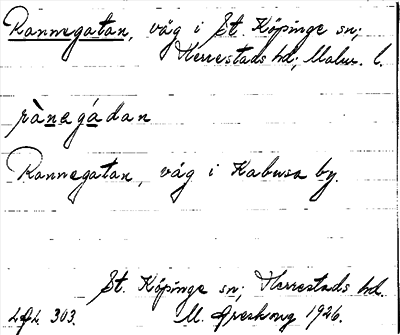 Rannegatan, väg i St. Köpinge sn;
Herrestads hd; Malm. l.
rànegádan
Rannegatan, väg i Kabusa by.
St. Köpinge sn; Herrestads hd.
LAL 303. M. 1926.